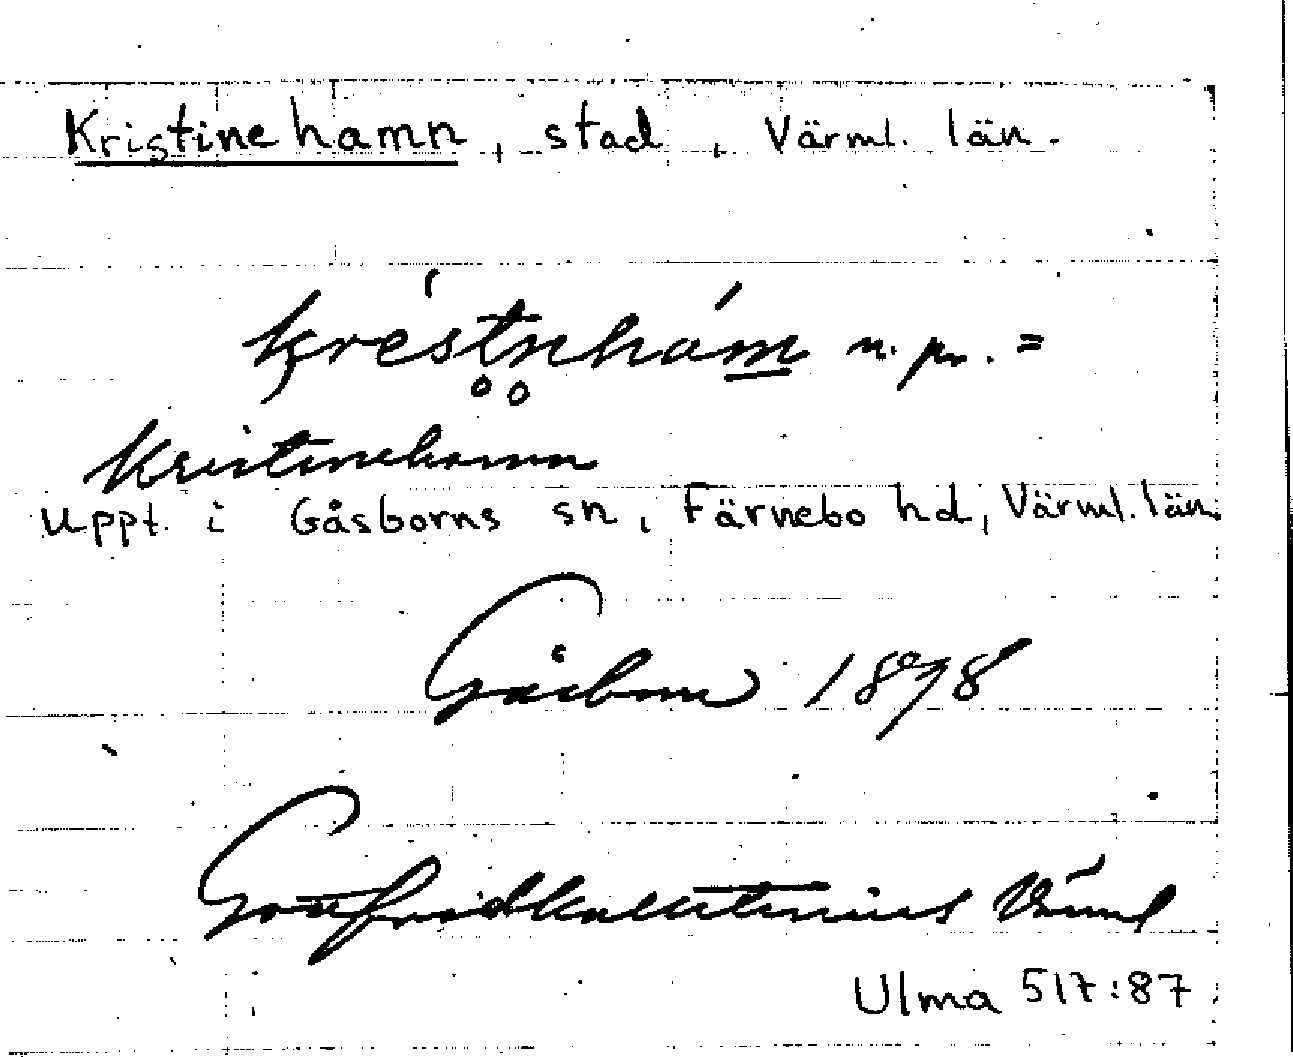 Kristinehamn, stad, Värml. län.
kréstnhám n. pr. =
Kristinehamn
Uppt. i Gåsborns sn, Färnebo hd, Värml. län.
Gåsborn 1898
Gottfrid Kallstenius Värml
Ulma 517:87